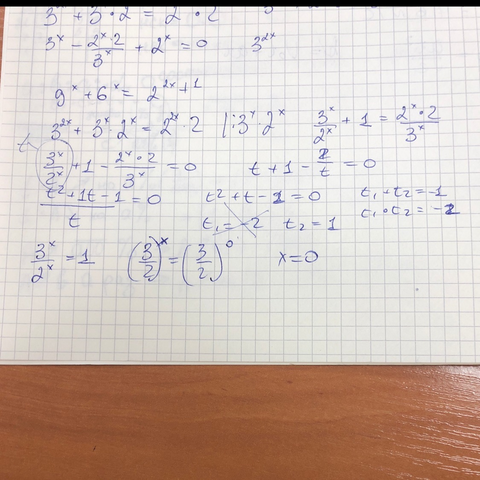 3^x + 3 · 2 = 2 · 2
3^x - (2^x · 2)/3^x + 2^x = 0 3^2x
9^x + 6^x = 2^(2x+1)
3^2x + 3^x · 2^x = 2^2x · 2 | : 3^x · 2^x 3^x/2^x + 1 = (2^x · 2)/3^x
t 3^x/2^x + 1 - (2^x · 2)/3^x = 0 t + 1 - 2/t = 0
(t^2 + 1t - 1)/t = 0 t^2 + t - 2 = 0 t1 + t2 = -1
t1 = -2 t2 = 1 t1 · t2 = -2
3^x/2^x = 1 (3/2)^x = (3/2)^0 x = 0